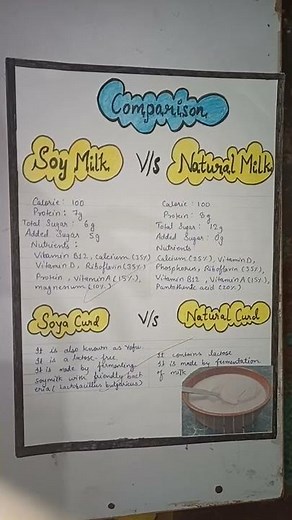 Comparison
Soy Milk V/s Natural Milk
Calorie: 100
Protein: 7g
Total Sugar: 6g
Added Sugar 5g
Nutrients:
Vitamin B12, calcium (35%)
Vitamin D, Riboflavin (35%)
Protein, Vitamin A (15%),
magnesium (10%)
Calorie: 100
Protein: 8g
Total Sugar: 12g
Added Sugar: 0g
Nutrients
Calcium (25%), Vitamin D,
Phosphorus, Riboflavin (35%),
Vitamin B12, Vitamin A (15%),
Pantothenic acid (20%)
Soya Curd V/s Natural Curd
It is also known as
It is a lactose free
It is made by fermenting
soymilk with friendly bact
eria (Lactobacillus bulgaricus)
It contains lactose
It is made by fermentation
of milk